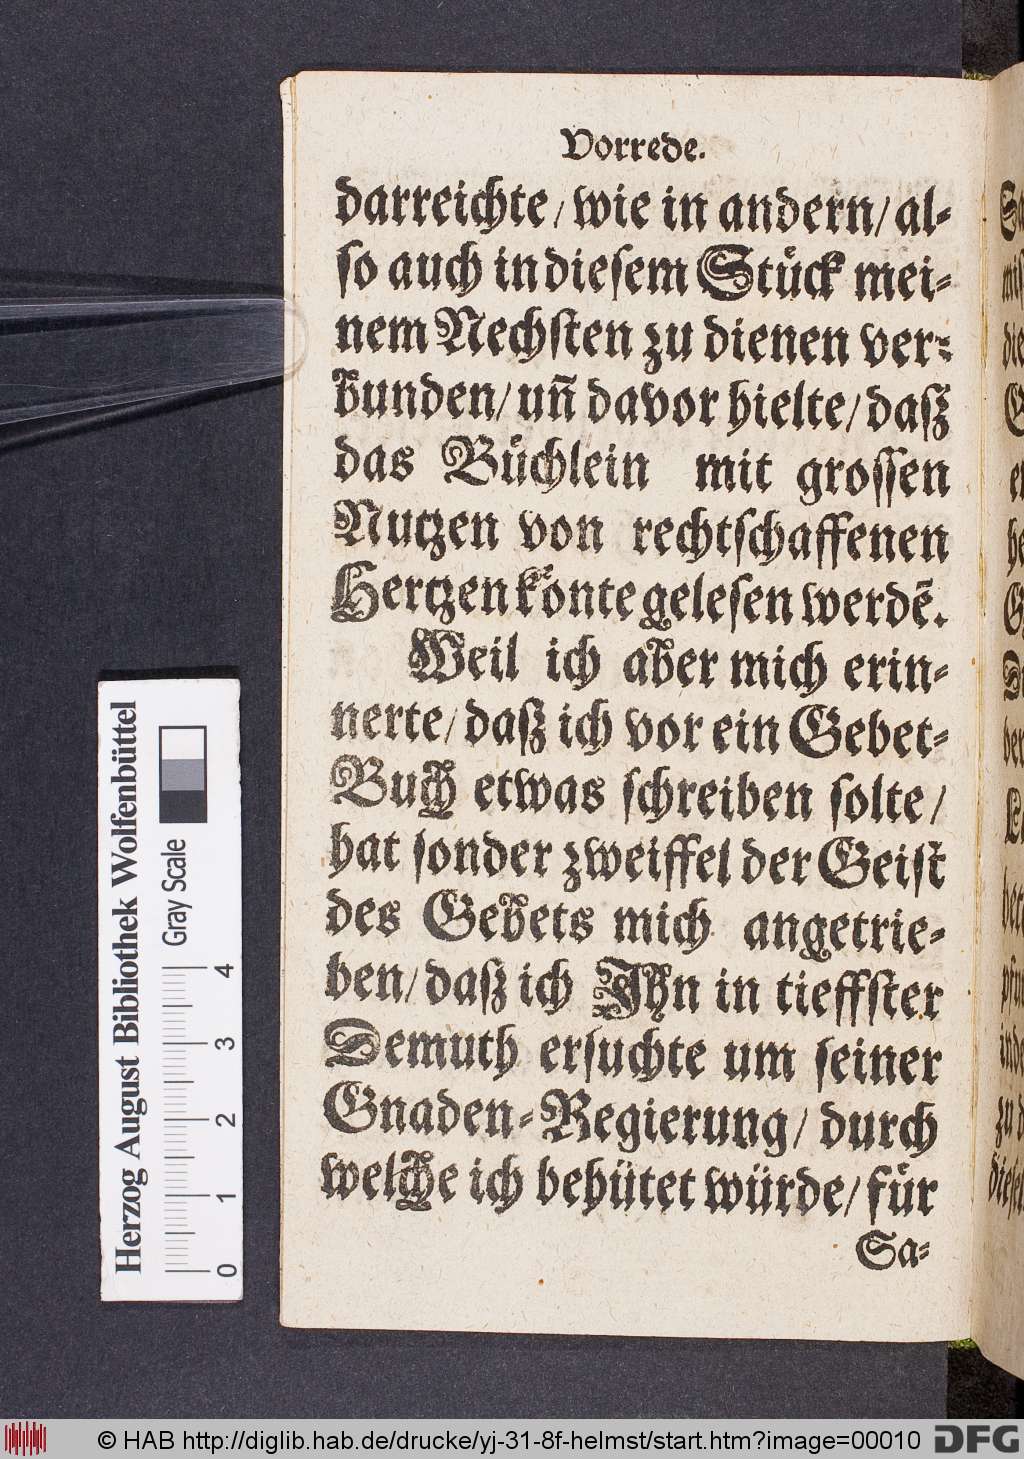 Vorrede.
darreichte/ wie in andern/ al-
so auch in diesem Stück mei-
nem Nechsten zu dienen ver-
bunden/ uñ davor hielte/ daß
das Büchlein mit grossen
Nutzen von rechtschaffenen
Hertzen könte gelesen werdē.
Weil ich aber mich erin-
nerte/ daß ich vor ein Gebet-
Buch etwas schreiben solte/
hat sonder zweiffel der Geist
des Gebets mich angetrie-
ben/ daß ich Ihn in tieffster
Demuth ersuchte um seiner
Gnaden-Regierung/ durch
welche ich behütet würde/ für
Sa-
Herzog August Bibliothek Wolfenbüttel
Gray Scale
0 1 2 3 4
© HAB http://diglib.hab.de/drucke/yj-31-8f-helmst/start.htm?image=00010
DFG